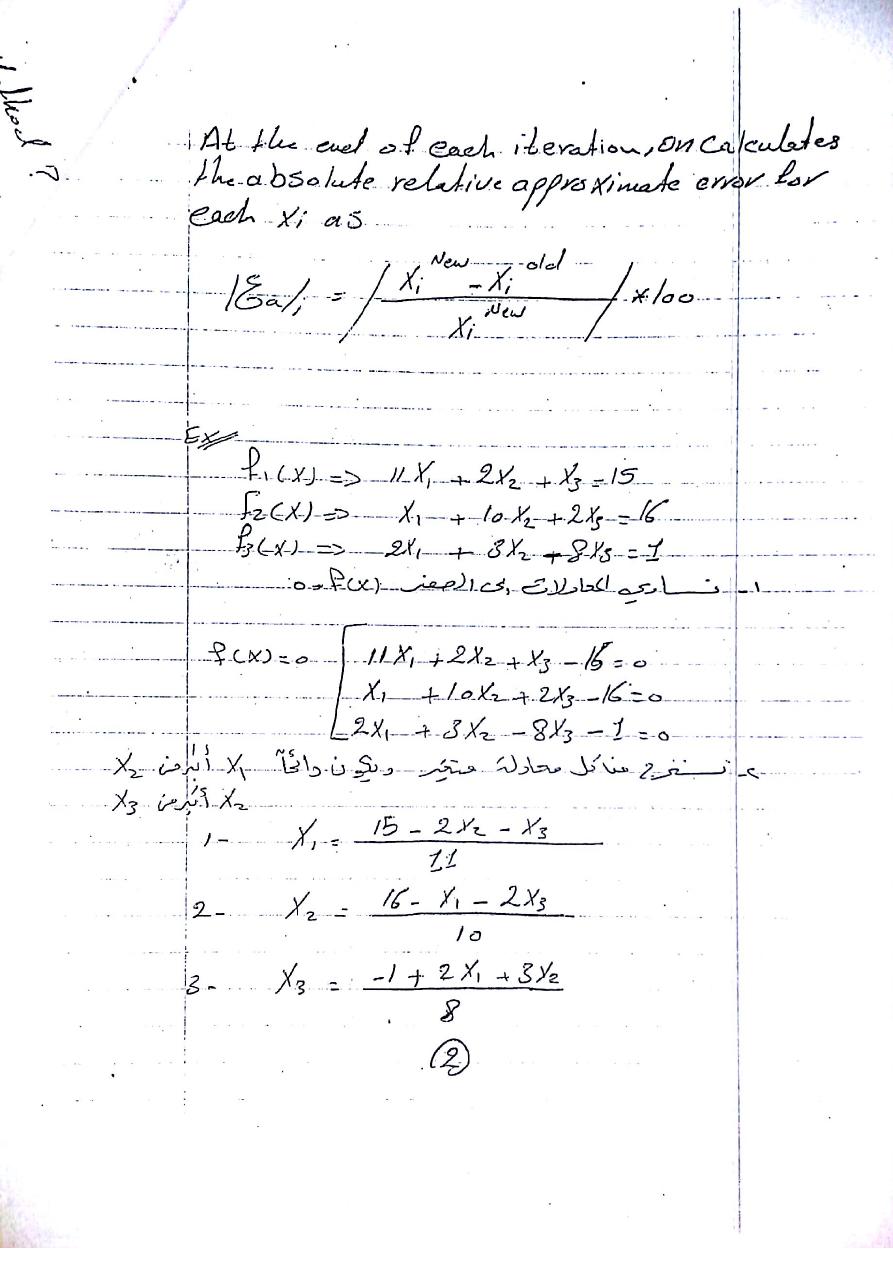 At the end of each iteration, on calculates
the absolute relative approximate error for
each Xi as
|Ea|i = | Xi^New - Xi^old / Xi^New | * 100
Ex
f1(X) => 11X1 + 2X2 + X3 = 15
f2(X) => X1 + 10X2 + 2X3 = 16
f3(X) => 2X1 + 3X2 - 8X3 = 1
١- نساوي المعادلات الى الصفر f(x)=0
f(X)=0 [ 11X1 + 2X2 + X3 - 15 = 0
X1 + 10X2 + 2X3 - 16 = 0
2X1 + 3X2 - 8X3 - 1 = 0
٢- نستخرج من كل معادلة متغير ويكون دائماً X1 أكبر من X2
X2 أكبر من X3
1- X1 = 15 - 2X2 - X3 / 11
2- X2 = 16 - X1 - 2X3 / 10
3- X3 = -1 + 2X1 + 3X2 / 8
2